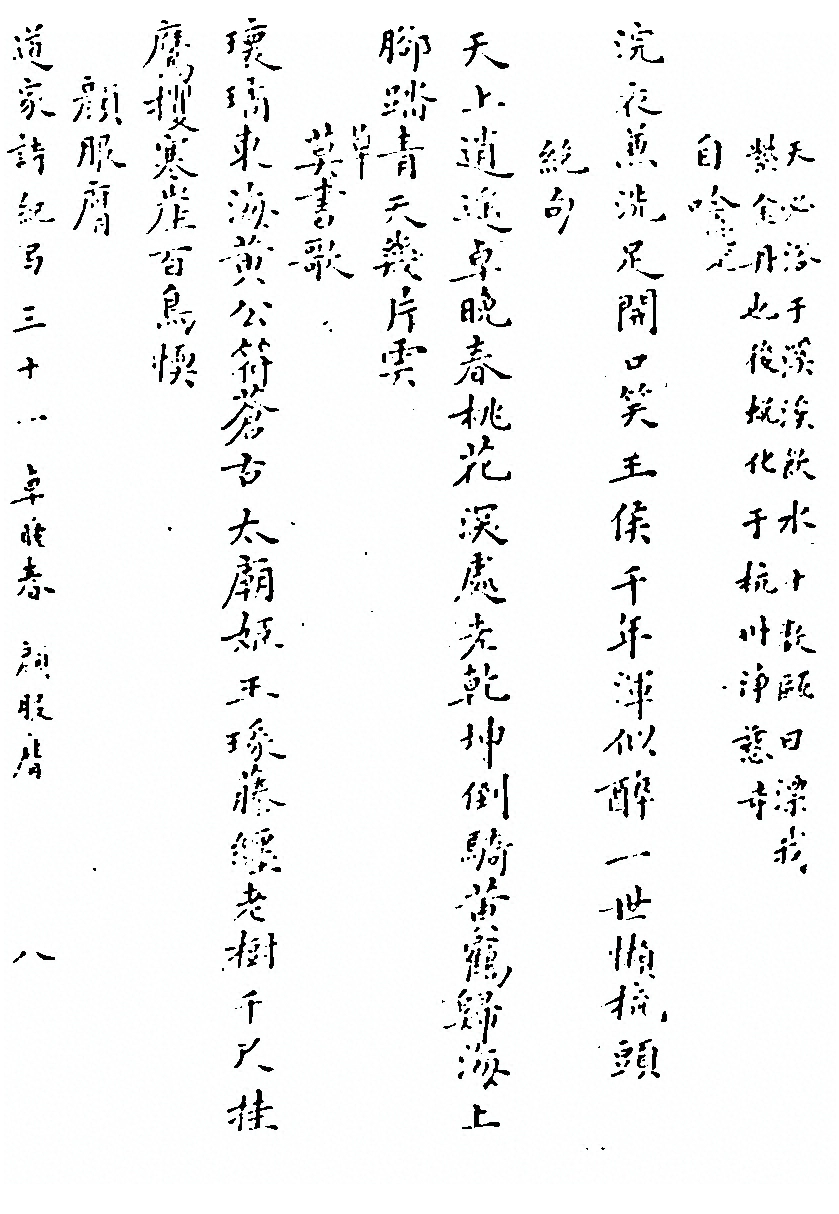 天必浴于溪浴飲水十數甌曰澡我
整金丹也後蛻化于杭州淨慈寺
自咏
浣衣兼洗足開口笑王侯千年渾似醉一世懶梳頭
絕句
天上逍遙卓晚春桃花深處老乾坤倒騎黃鶴歸海上
腳踏青天幾片雲
草
莫書歌
瓌璃東海黃公符蒼古太廟姬王琢藤纏老樹千尺挂
鷹攫寒崖百鳥惧
顏服膺
道家詩紀 三十一 卓晚春 顏服膺 八